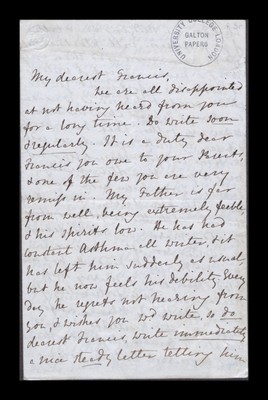 UNIVERSITY COLLEGE LONDON
GALTON
PAPERS
My dearest Francis,
We are all disappointed
at not having heard from you
for a long time. Do write soon
& regularly. It is a duty dear
Francis you owe to your Parents,
& one of the few you are very
remiss in. My Father is far
from well, being extremely feeble,
& his spirits low. He has had
constant Asthma all winter, & it
has left him suddenly as usual
but he now feels his debility. Every
day he regrets not hearing from
you, & wishes you wd write, so do
dearest Francis, write immediately
a nice steady letter telling him